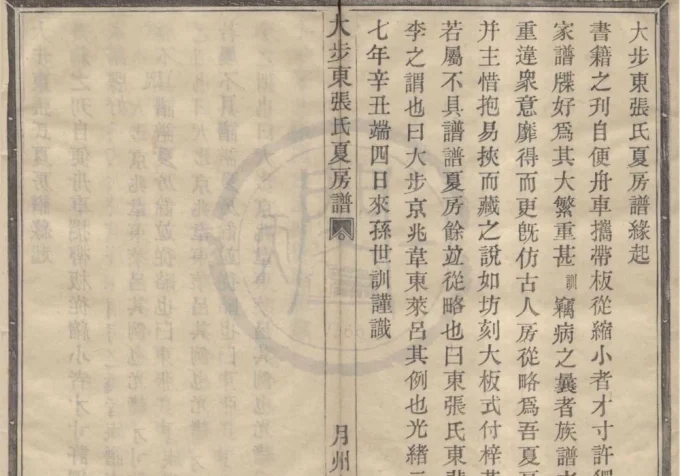 大步東張氏夏房譜緣起
書籍之刊自便舟車攜帶板從縮小者才寸許獨
家譜牒好爲其大繁重甚訓竊病之曩者族譜
重違衆意靡得而更旣仿古人房從略爲吾夏
并主惜抱易挾而藏之說如坊刻大板式付梓
若屬不具譜譜夏房餘竝從略也曰東張氏東
李之謂也曰大步京兆韋東萊呂其例也光緒
七年辛丑端四日來孫世訓謹識
大步東張氏夏房譜
月州